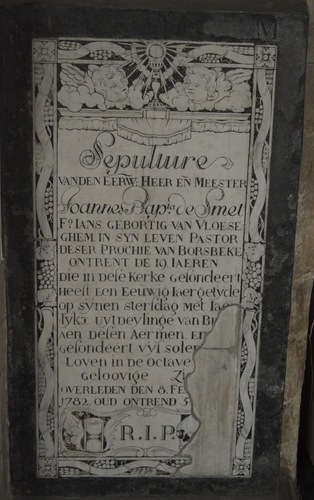 M
Sepulture
VANDEN EERW: HEER EÑ MEESTER
Joannes Bap^ta de Smet
F^s IANS, GEBORTIG VAN VLOESE
GHEM IN SYN LEVEN PASTOR
DESER PROCHIE VAN BORSBEKE
ONTRENT DE 19 IAEREN
Die in dese Kerke gefondeert
Heeft een Eeuwig Iaergetyde
op synen sterfdag met Iae
lyks uytdeylinge van Br
aen desen Aermen en
gefondeert vyf solem
Loven in de Octave
Geloovige Zi
OVERLEDEN DEN 8. FE
1782. OUD ONTREND 5
R.I.P.